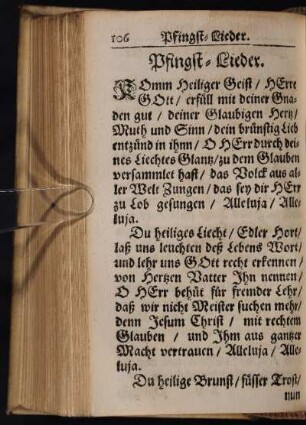 106 Pfingst-Lieder.
Pfingst-Lieder.
KOmm Heiliger Geist / HErre
GOtt / erfüll mit deiner Gna-
den gut / deiner Glaubigen Hertz /
Muth und Sinn / dein brünstig Lieb
entzünd in ihm / O HErr durch dei-
nes Liechtes Glantz / zu dem Glauben
versammlet hast / das Volck aus al-
ler Welt Zungen / das sey dir HErr
zu Lob gesungen / Alleluja / Alle-
luja.
Du heiliges Liecht / Edler Hort /
laß uns leuchten deß Lebens Wort /
und lehr uns GOtt recht erkennen /
von Hertzen Vatter Ihn nennen /
O HErr behüt für fremder Lehr /
daß wir nicht Meister suchen mehr /
denn Jesum Christ / mit rechtem
Glauben / und Ihm aus gantzer
Macht vertrauen / Alleluja / Alle-
luja.
Du heilige Brunst / süsser Trost /
nun